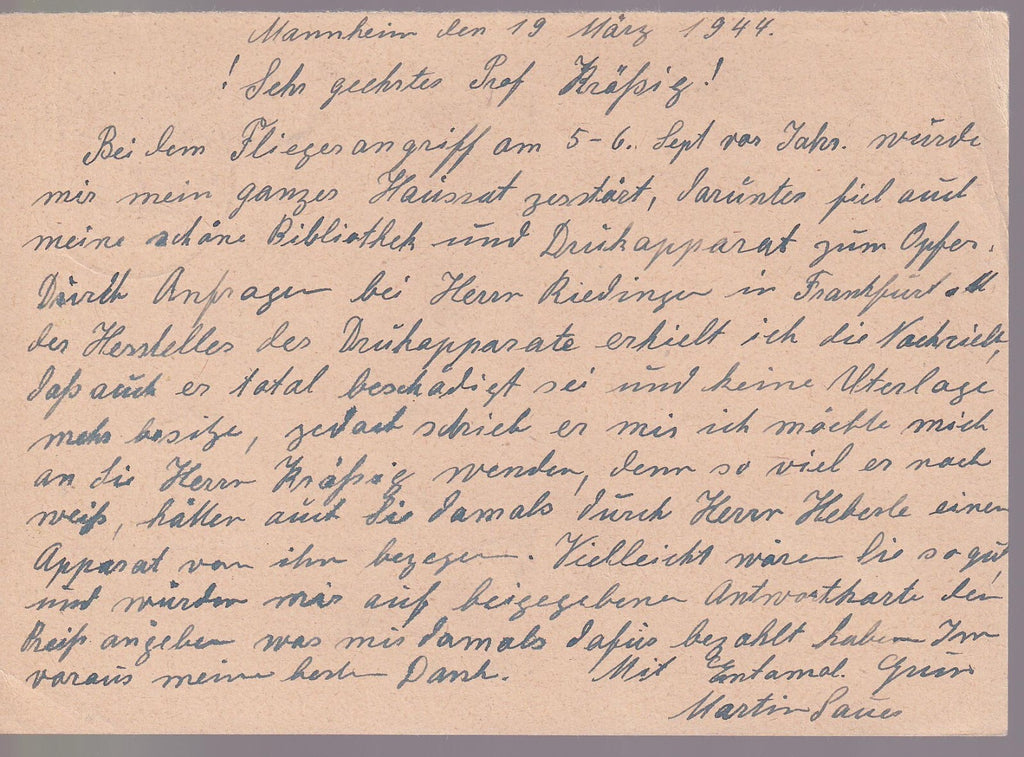 Mannheim den 19 März 1944.
! Sehr geehrter Prof Kräßig!
Bei dem Fliegerangriff am 5-6. Sept vor Jahr. wurde
mir mein ganzer Hausrat zerstört, darunter fiel auch
meine schöne Bibliothek und Drukapparat zum Opfer.
Durch Anfragen bei Herrn Riedinger in Frankfurt
der Hersteller des Drukapparate erhielt ich die Nachricht,
daß auch er total beschädigt sei und keine Uterlage
mehr besitze, jedoch schrieb er mir ich möchte mich
an Sie Herrn Kräßig wenden, denn so viel er noch
weiß, hätten auch Sie damals durch Herrn Heberle einen
Apparat von ihm bezogen. Vielleicht wären Sie so gut
und würden mir auf beigegebener Antwortkarte den
Preiß angeben was mir damals dafür bezahlt haben Im
voraus meinen besten Dank. Mit Entomol. Gruß
Martin Sauer